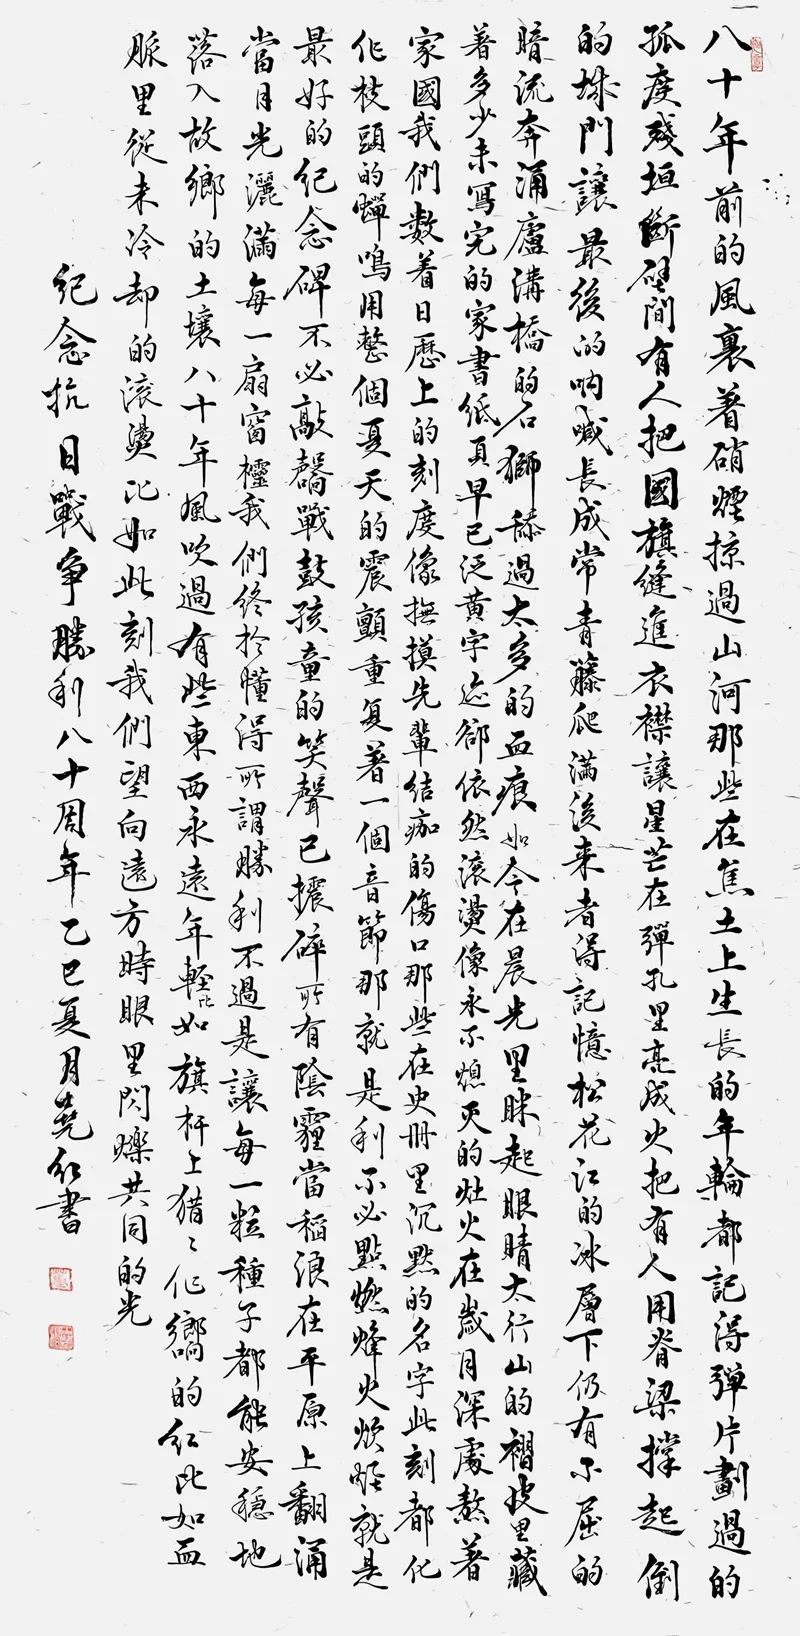 八十年前的風裹着硝煙掠過山河那些在焦土上生長的年輪都記得彈片劃過的
孤度殘垣斷壁間有人把國旗縫進衣襟讓星芒在彈孔里亮成火把有人用脊梁撐起倒
的城門讓最後的呐喊長成常青藤爬滿後来者得記憶松花江的冰層下仍有不屈的
暗流奔涌盧溝橋的石獅舔過太多的血痕如今在晨光里眯起眼睛太行山的褶皮里藏
着多少未寫完的家書紙頁早已泛黃字迹卻依然滚燙像永不熄灭的灶火在歲月深處熬着
家國我們數着日歷上的刻度像撫摸先輩結痂的傷口那些在史冊里沉默的名字此刻都化
作枝頭的蟬鳴用整個夏天的震顫重复着一個音節那就是利不必點燃烽火炊烟就是
最好的纪念碑不必敲響戰鼓孩童的笑聲已攘碎所有陰霾當稻浪在平原上翻涌
當月光灑滿每一扇窗櫺我們終於懂得所謂勝利不過是讓每一粒種子都能安穩地
落入故鄉的土壤八十年風吹過有些東西永遠年輕比如旗杆上猎〻作響的红比如血
脈里從未冷却的滚燙比如此刻我們望向遠方時眼里閃爍共同的光
纪念抗日戰争勝利八十周年乙巳夏月堯红書